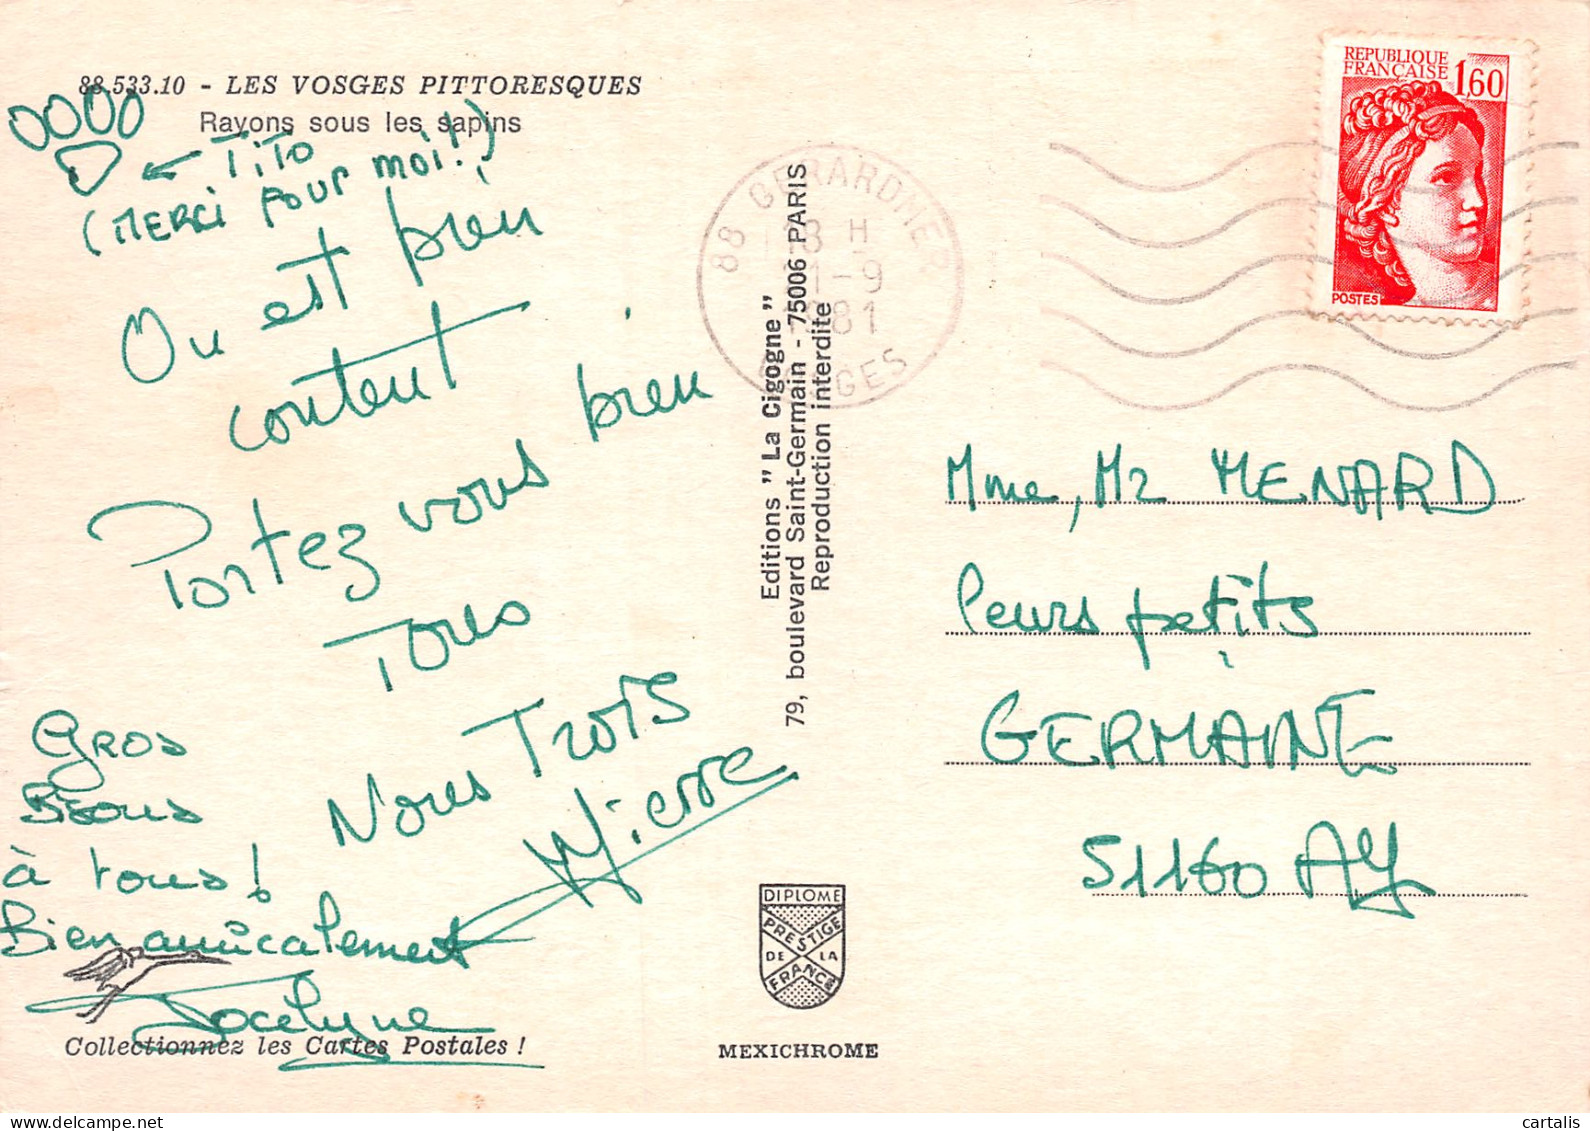 88.533.10 - LES VOSGES PITTORESQUES
Rayons sous les sapins
TITO
(MERCI POUR moi!!)
On est bien
content
Portez vous bien
Tous
Nous Trois
Pierre
Gros
Bisous
à tous!
Bien amicalement
Jocelyne
Collectionnez les Cartes Postales !
Editions " La Cigogne "
79, boulevard Saint-Germain - 75006 PARIS
Reproduction interdite
DIPLOME
PRESTIGE
DE LA
FRANCE
MEXICHROME
88 GERARDMER
18 H
1-9
1981
VOSGES
REPUBLIQUE
FRANCAISE 1,60
POSTES
Mme, Mr MENARD
leurs petits
GERMAINE
51160 AY
cartalis